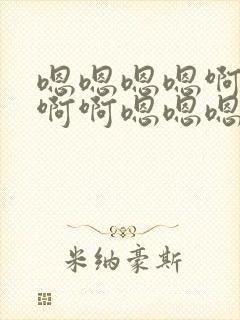 嗯嗯嗯嗯啊
啊啊嗯嗯嗯
米纳豪斯